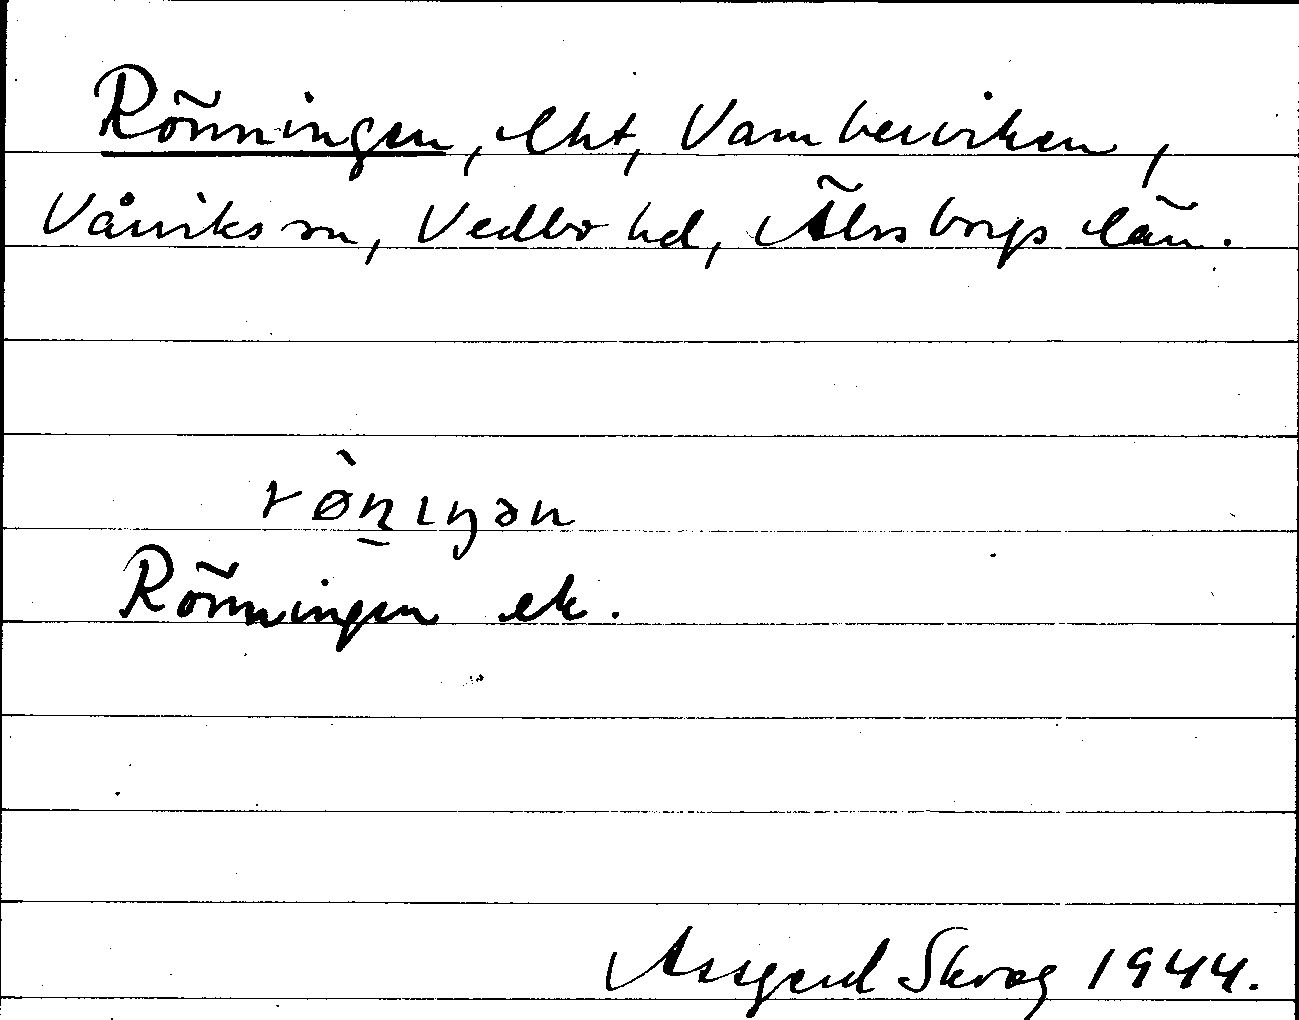 Rönningen, lht, Vamberviken,
Vårviks sn, Vedbo hd, Älvsborgs län.
rø̀n̠ıŋən
Rönningen ek.
Assgerd Skrog 1944.